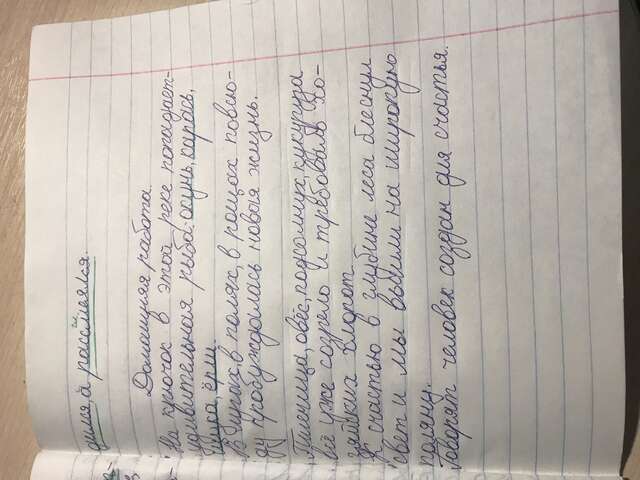 дился, а рассмеялся.
Домашняя работа.
На крючок в этой реке попадает-
удивительная рыба: окунь, карась,
щука, ёрш.
В лугах, в полях, в рощах повсю-
ду пробуждалась новая жизнь.
Пшеница, овёс, подсолнух, кукуруза
всё уже созрело и требовало хо-
зяйских хлопот
К счастью в глубине леса блеснул
свет и мы вышли на широкую
поляну.
Говорят человек создан для счастья.